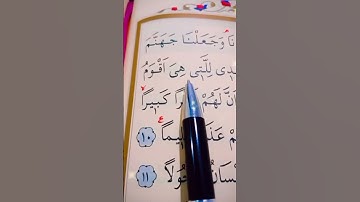 نَا وَجَعَلْنَا جَهَنَّمَ
دٖى لِلَّتٖى هِىَ اَقْوَمُ
نَّ لَهُمْ رًا كَبٖيرًا
مْ عَذَا يمًا ١٠
سَانُ ولًا ١١